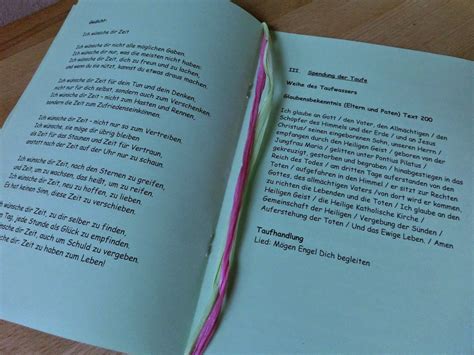 Gedicht:
Ich wünsche dir Zeit
Ich wünsche dir nicht alle möglichen Gaben.
Ich wünsche dir nur, was die meisten nicht haben:
Ich wünsche dir Zeit, dich zu freun und zu lachen,
und wenn du sie nützt, kannst du etwas draus machen.
Ich wünsche dir Zeit für dein Tun und dein Denken,
nicht nur für dich selbst, sondern auch zum Verschenken.
Ich wünsche dir Zeit - nicht zum Hasten und Rennen,
sondern die Zeit zum Zufriedenseinkönnen.
Ich wünsche dir Zeit - nicht nur so zum Vertreiben.
Ich wünsche, sie möge dir übrig bleiben
als Zeit für das Staunen und Zeit für Vertraun,
anstatt nach der Zeit auf der Uhr nur zu schaun.
Ich wünsche dir Zeit, nach den Sternen zu greifen,
und Zeit, um zu wachsen, das heißt, um zu reifen.
Ich wünsche dir Zeit, neu zu hoffen, zu lieben.
Es hat keinen Sinn, diese Zeit zu verschieben.
wünsche dir Zeit, zu dir selber zu finden,
Tag, jede Stunde als Glück zu empfinden.
wünsche dir Zeit, auch um Schuld zu vergeben.
wünsche dir Zeit zu haben zum Leben!
III. Spendung der Taufe
Weihe des Taufwassers
Glaubensbekenntnis (Eltern und Paten) Text 200
Ich glaube an Gott / den Vater, den Allmächtigen / den
Schöpfer des Himmels und der Erde / und an Jesus
Christus/ seinen eingeborenen Sohn, unseren Herrn /
empfangen durch den Heiligen Geist / geboren von der
Jungfrau Maria / gelitten unter Pontius Pilatus /
gekreuzigt, gestorben und begraben / hinabgestiegen in das
Reich des Todes / am dritten Tage auferstanden von den
Toten / aufgefahren in den Himmel / er sitzt zur Rechten
Gottes, des allmächtigen Vaters / von dort wird er kommen,
zu richten die Lebenden und die Toten / Ich glaube an den
Heiligen Geist / die Heilige Katholische Kirche /
Gemeinschaft der Heiligen / Vergebung der Sünden /
Auferstehung der Toten / Und das Ewige Leben. / Amen
Taufhandlung
Lied: Mögen Engel Dich begleiten